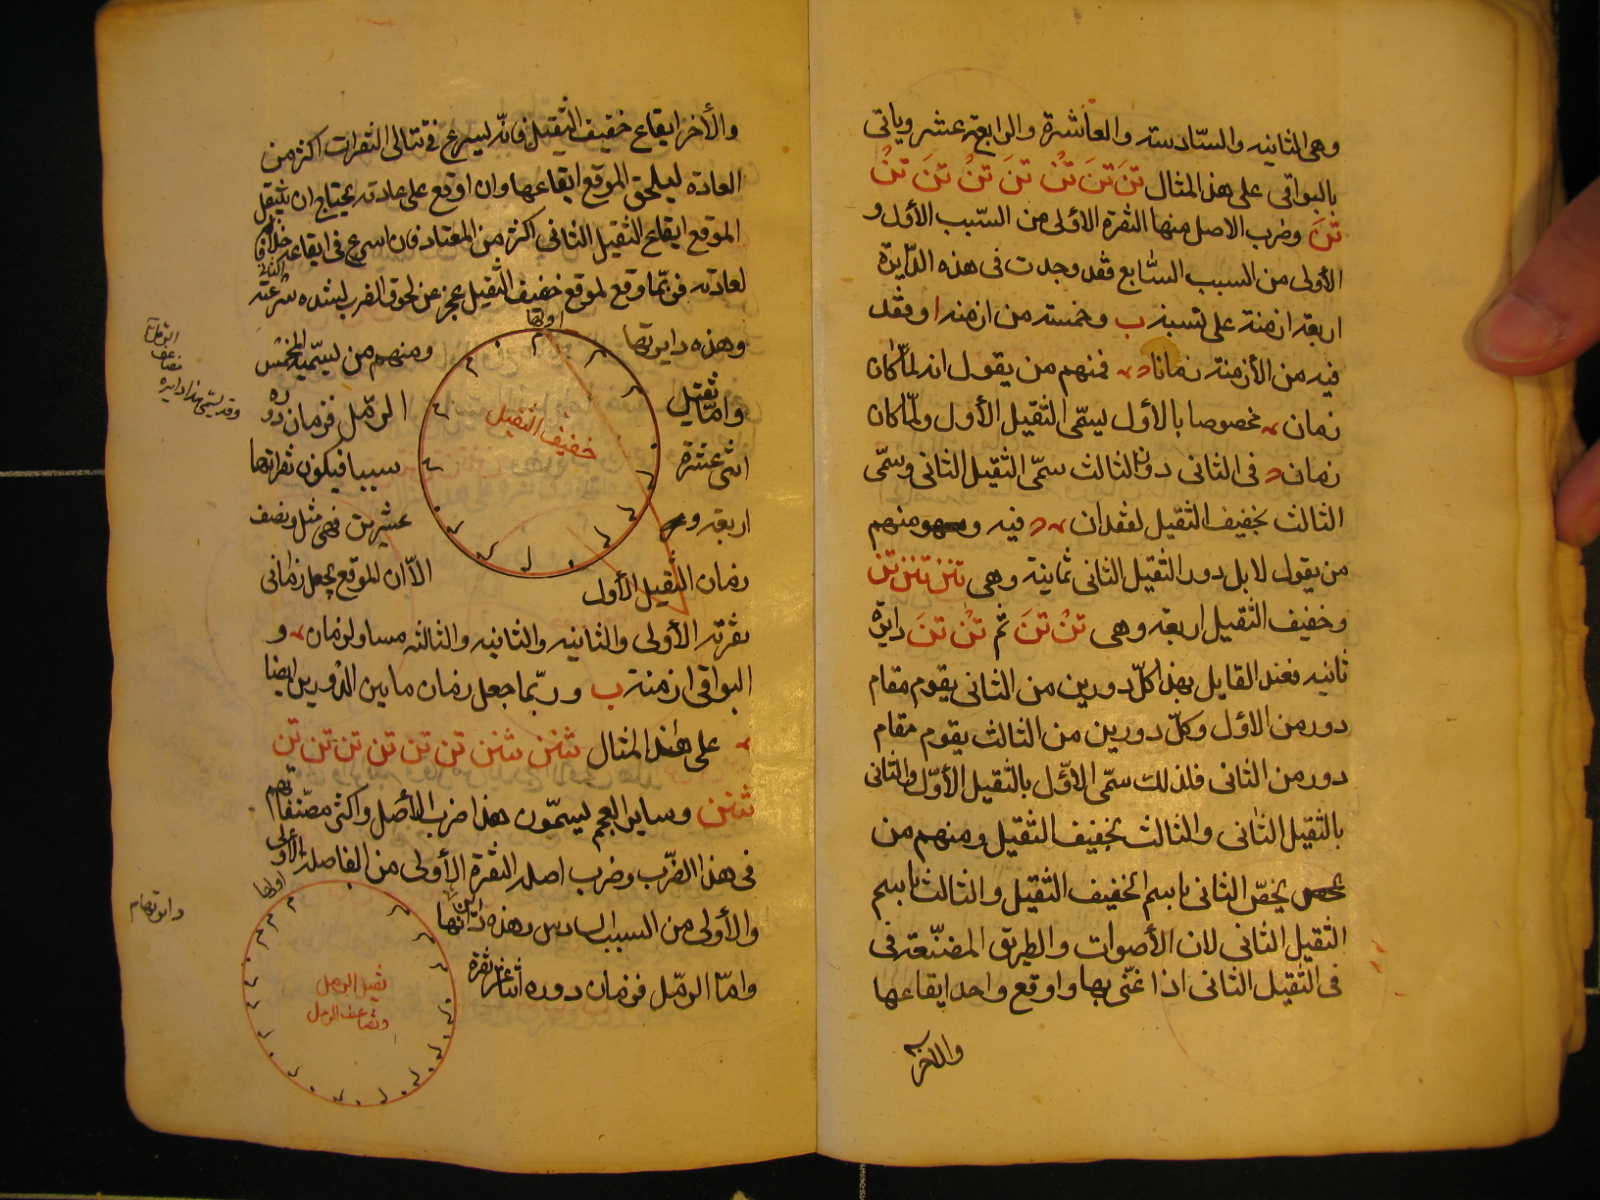 وهى الثانيه والسّادسته والعاشرة والرابعة عشر وياتى
بالبواقى على هذ المثال تنَ تنَ تنْ تنَ تنْ تنَ تنْ
تنَ وضرب الاصل منها النقرة الأولى من السّبب الأول و
الأولى من السبب السّابع فقد وجدت فى هذه الدّايرة
اربعه ازمنة على نسبة ب وخمسته من ازمنه ا وفقد
فيه من الأزمنة زمانا فمنهم من يقول انه لمّا كان
زمان مخصوصا بالأول ليسمّى الثقيل الأول ولمّا كان
زمان فى الثانى دون الثالث سمّى الثقيل الثانى وسمّى
الثالث بخفيف الثقيل لفقدان فيه ومنهم
من يقول لا بل دور الثقيل الثانى ثمانية وهى تنن تنن تن
وخفيف الثقيل اربعه وهى تنْ تنَ ثم تنْ تنَ دايرة
ثانيه فعند القايل بهذا كلّ دورين من الثانى يقوم مقام
دور من الأول وكلّ دورين من الثالث يقوم مقام
دور من الثانى فلذلك سمّى الاوّل بالثقيل الأوّل والثانى
بالثقيل الثانى والثالث بخفيف الثقيل ومنهم من
يخصّ الثانى باسم الخفيف الثقيل والثالث باسم
الثقيل الثانى لان الأصوات والطريق المصنّعة فى
فى الثقيل الثانى اذا غنّى بها واوقع واحد ايقاعها
والاخر
والأخر ايقاع خفيف الثقيل فانه ليسرع فتتالى النقرات اكثر من
العادة ليلحق الموقع ايقاعها وان اوقع على عادته يحتاج ان يثقل
الموقع ايقاع الثقيل الثانى اكثر من المعتاد فان اسرع فى ايقاعه خلافا
لعادته فربّما وقع لموقع خفيف الثقيل عجز عن لحوق الضرب لشده سرعته
وهذه دايرتها
اولها
ومنهم من يسمّيه المخمّس
خفيف الثقيل
وامّا ثقيل
الرمّل فزمان دوره
اثنى عشرة
سببا فيكون نقراتها
اربعه و
عشرين فهى مثل ونصف
زمان الثقيل الأول
الّا ان الموقع يجعل زمانى
نقرته الأولى والثانيه والثانيه والثالثه مساو لزمان و
البواقى ازمنة ب وربّما جعل زمان ما بين الدّورين ايضا
على هذا المثال تنن تنن تن تن تن تن تن تن
تنن وساير العجم يسمّون هذا ضرب الأصل واكثر مصنّفاتهم
فى هذا الضّرب وضرب اصله النقرة الأولى من الفاصله الأولى
والأولى من السبب السادس وهذه دائرتها
وامّا الرمّل فزمان دوره اثنا عشر نقرة
اولها
ثقيل الرمل
مضاعف الرمل
وقد يسمّى هذا دايرة
مضاعف
الرمل